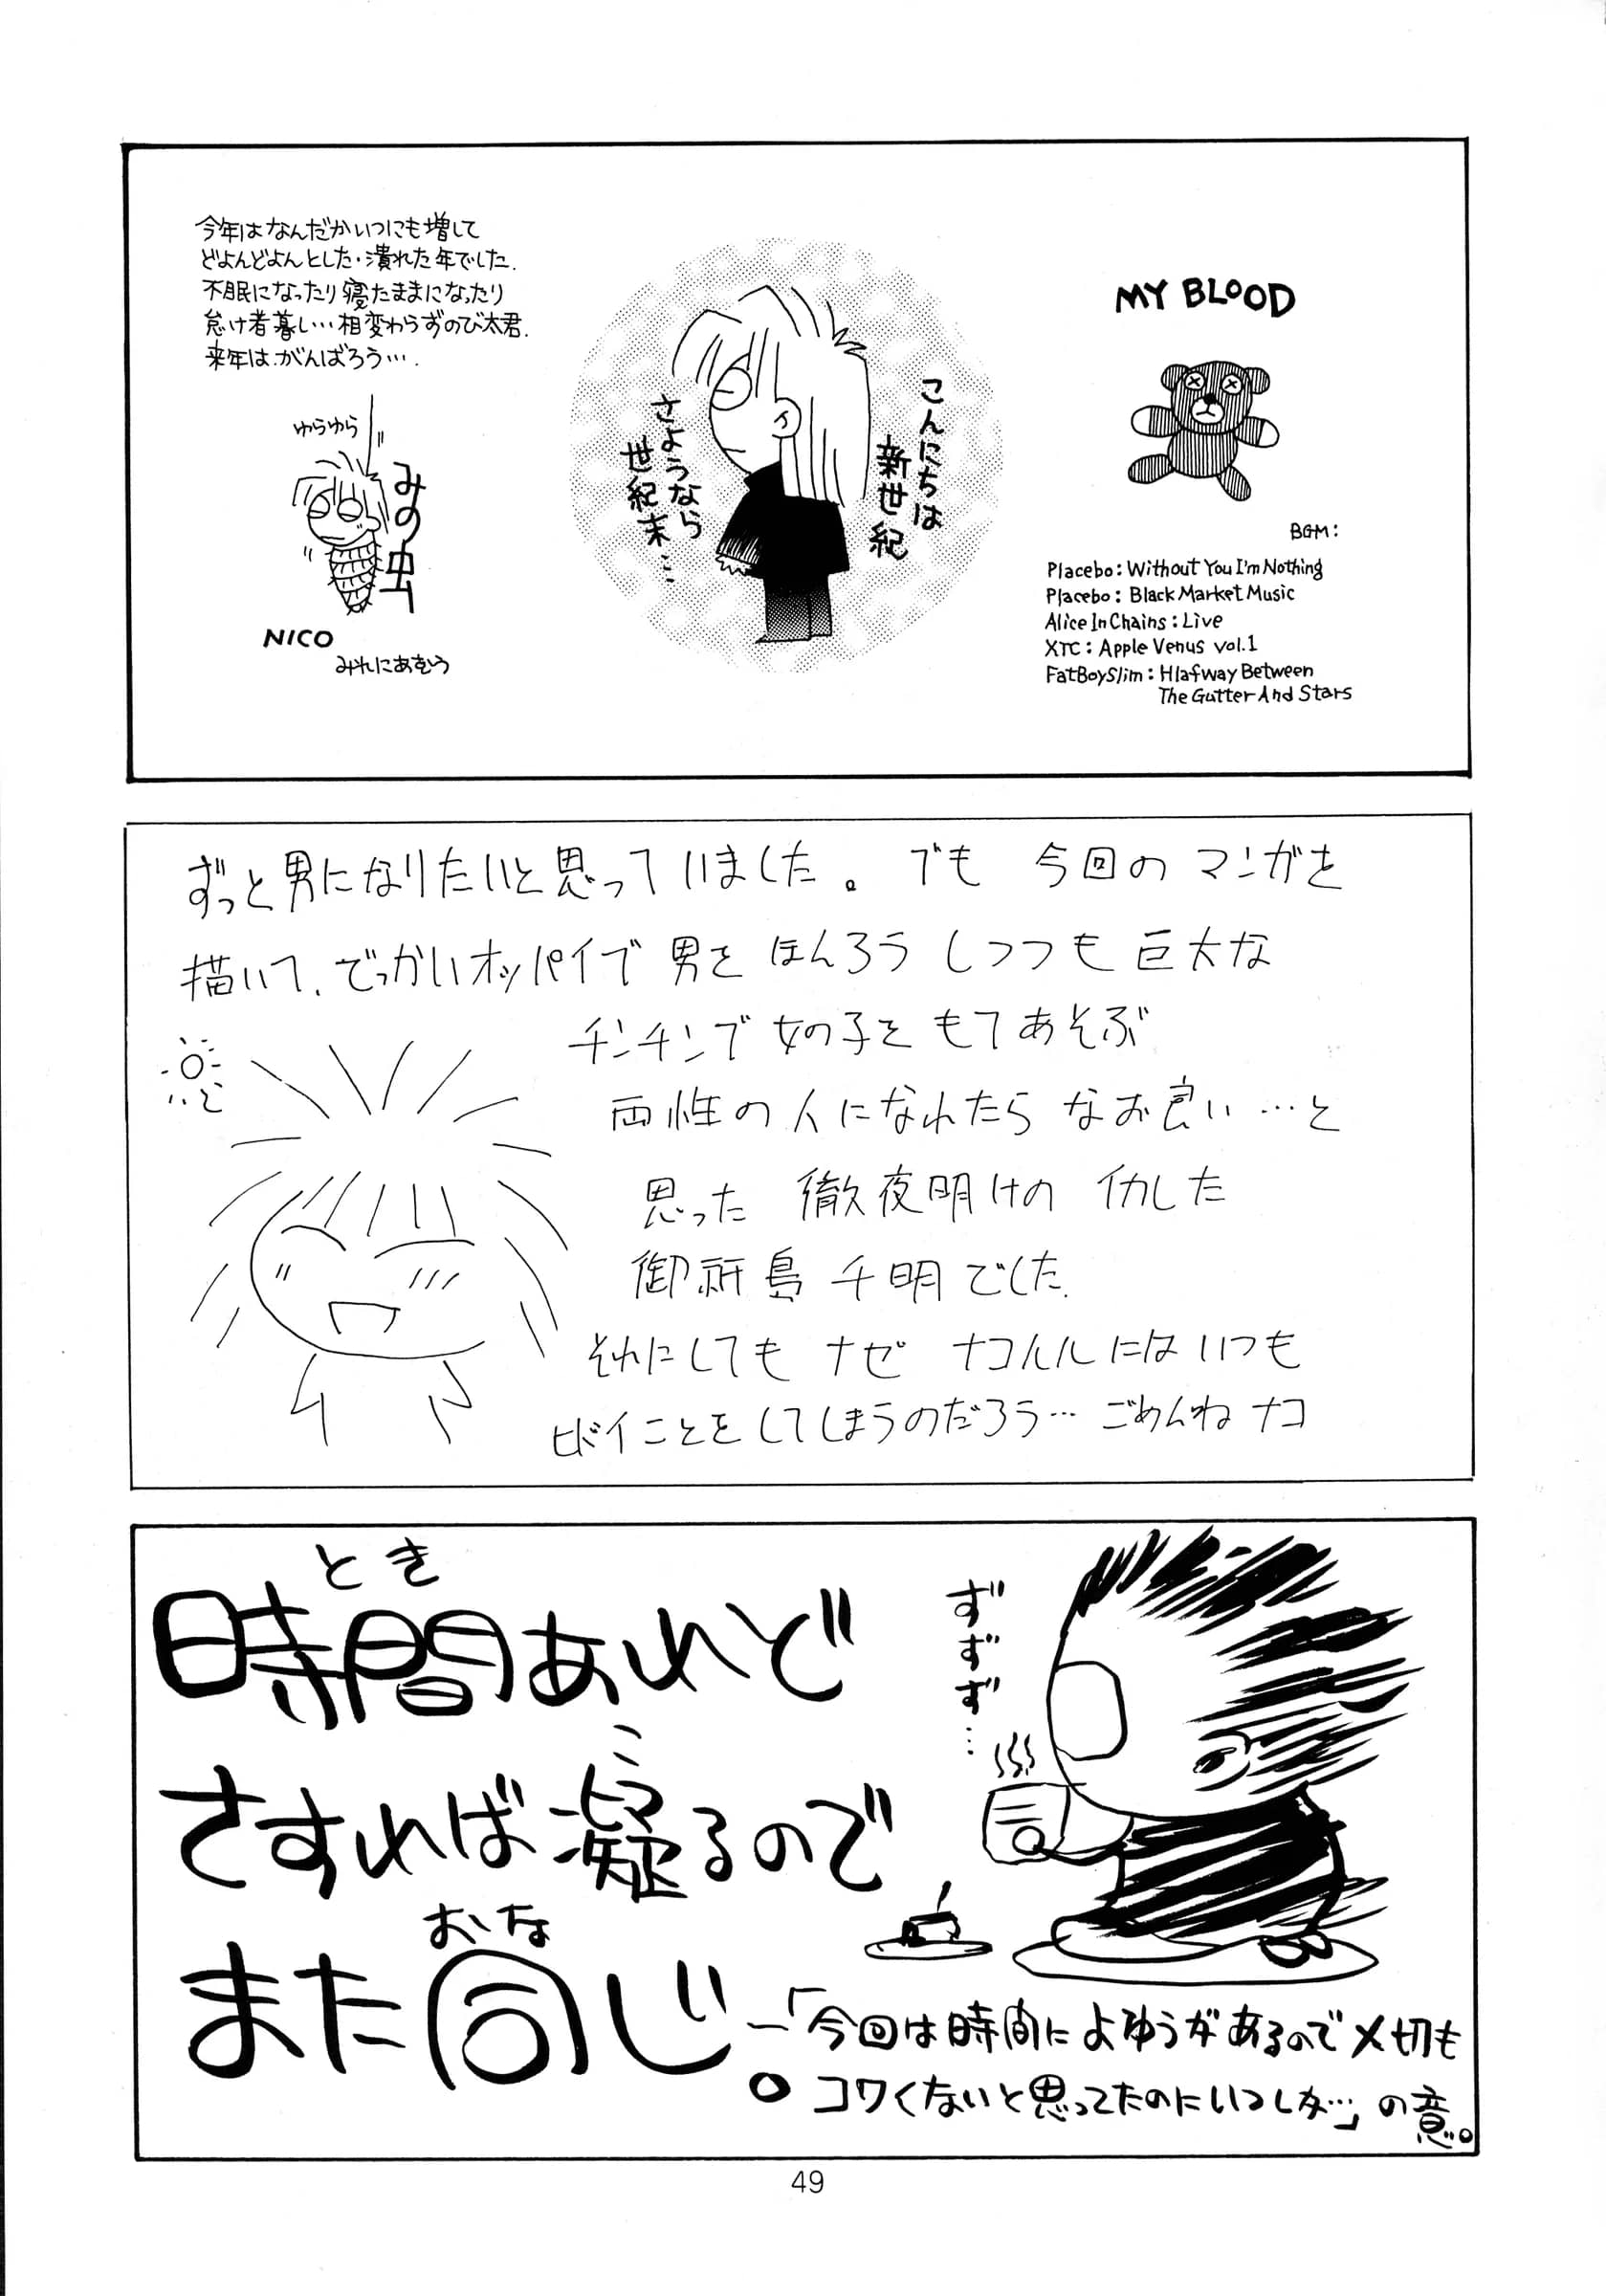 今年はなんだかいつにも増して
どよんどよんとした・潰れた年でした.
不眠になったり寝たままになったり
怠け者暮し…相変わらずのび太君.
来年は.がんばろう….
ゆらゆら
みの虫
NICO
みれにあむう
こんにちは
新世紀
さようなら
世紀末…
MY BLOOD
BGM:
Placebo: Without You I'm Nothing
Placebo: Black Market Music
Alice In Chains: Live
XTC: Apple Venus vol.1
FatBoySlim: Hlafway Between
The Gutter And Stars
ずっと男になりたいと思っていました。でも 今回の マンガを
描いて、でっかいオッパイで 男を ほんろう しつつも 巨大な
チンチンで 女の子を もてあそぶ
両性の人になれたら なお良い…と
思った 徹夜明けの イカした
御祈島 千明でした.
それにしても ナゼ ナコルルにはいつも
ヒドイことをしてしまうのだろう… ごめんね ナコ
とき
時間あれど
こ
さすれば凝るので
おな
また同じ。
ずずず…
―「今回は時間によゆうがあるので〆切も
コワくないと思ってたのにいつしか…」の意。
49